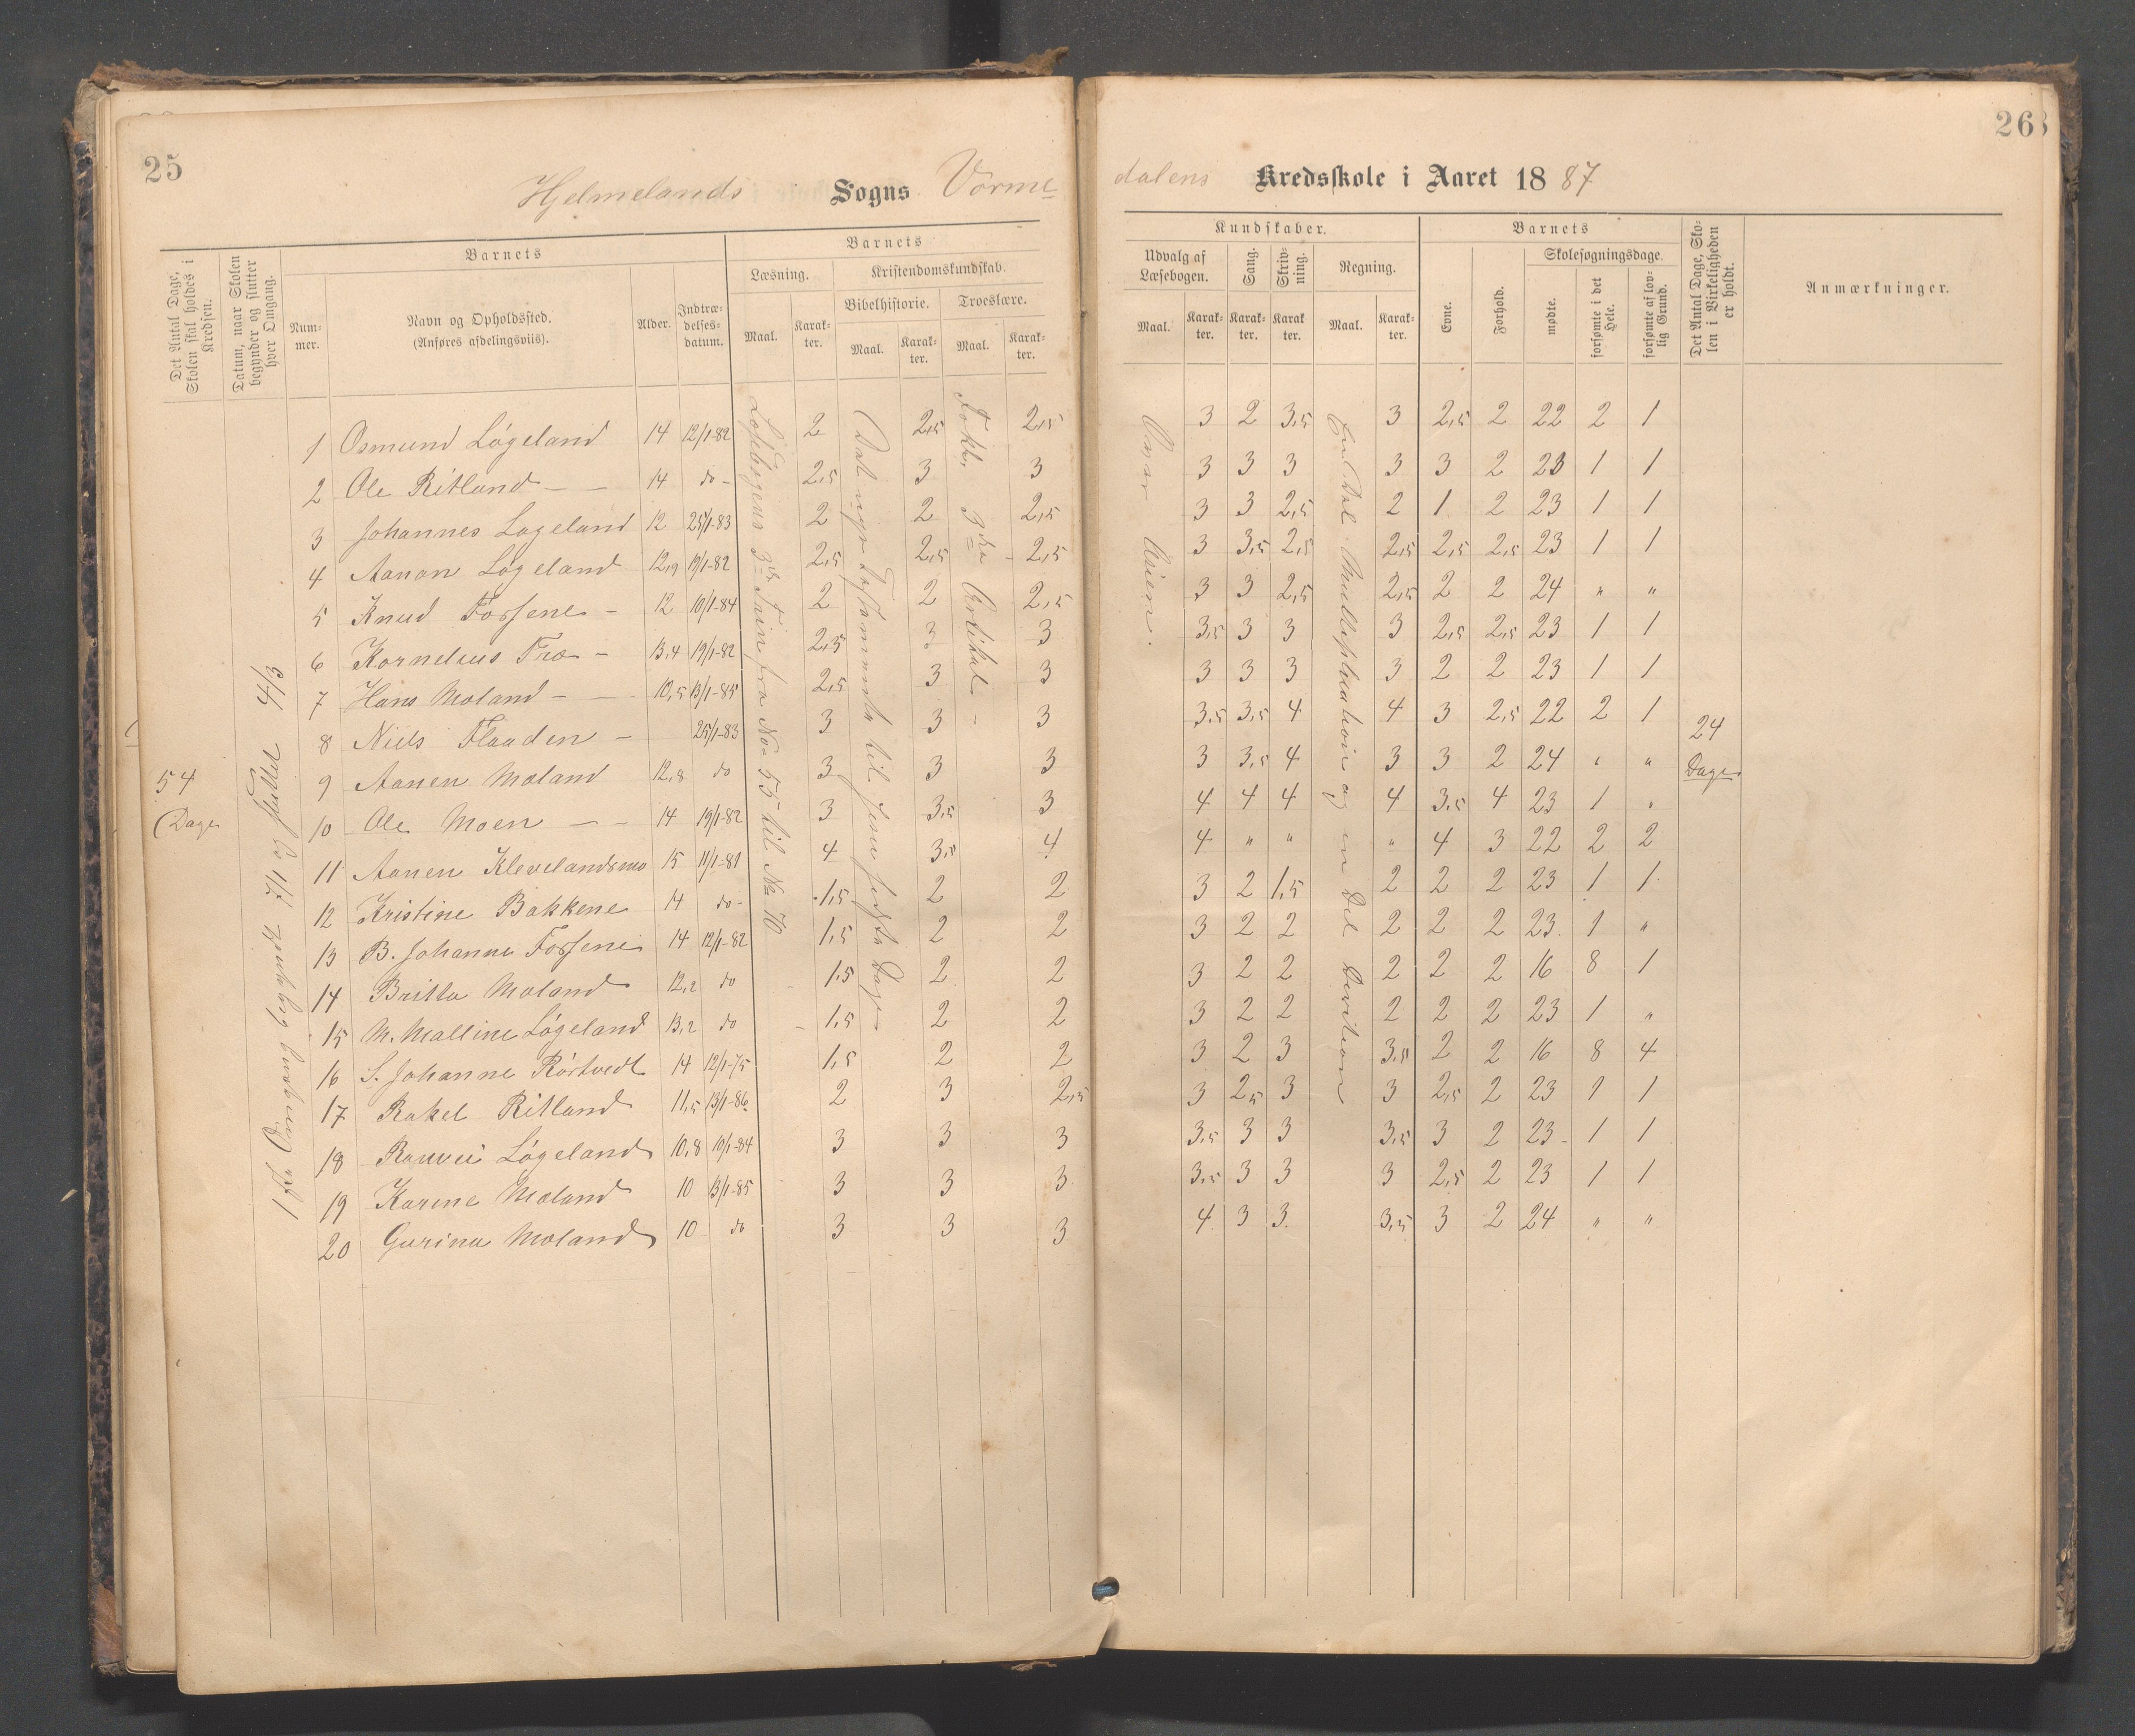 25
Hjelmelands Sogns Vorme-
Det Antal Dage, Skolen skal holdes i Kredsen.
Datum, naar Skolen begynder og slutter hver Omgang.
Barnets
Num-mer.
Navn og Opholdssted.
(Anføres afdelingsviis).
Alder.
Indtræ-delses-datum.
Barnets
Læsning.
Kristendomskundskab.
Bibelhistorie.
Troeslære.
Maal. Karak-ter. Maal. Karak-ter. Maal. Karak-ter.
54
Dage
1ste Omgang begyndt 7/1 og sluttet 4/3
Læsebogens 3die Trin fra No 55 til No 70
Det nye Testamente til Jesu sidste Dage
Tokke 3die Artikel -
1 Osmund Løgeland 14 12/1-82 2 2,5 2,5
2 Ole Ritland - - 14 do - 2,5 3 3
3 Johannes Løgeland 12 25/1-83 2 2 2,5
4 Aanon Løgeland 12,9 19/1-82 2,5 2,5 2,5
5 Knud Fossene - 12 10/1-84 2 2 2,5
6 Kornelius Træ - 13,4 19/1-82 2,5 3 3
7 Hans Moland - - 10,5 13/1-85 2,5 3 3
8 Niels Flaaden - 25/1-83 3 3 3
9 Aanen Mæland 12,8 do 3 3 3
10 Ole Moen - - 14 19/1-82 3 3,5 3
11 Aanen Klevelandsmo 15 11/1-81 4 3,5 4
12 Kristine Bakkene 14 do - 1,5 2 2
13 B. Johanne Fossene 14 12/1-82 1,5 2 2
14 Britta Moland 12,2 do 1,5 2 2
15 M. Malline Løgeland 13,2 do 1,5 2 2
16 S. Johanne Rørtvedt 14 12/1-75 1,5 2 2
17 Rakel Ritland 11,5 13/1-86 2 3 2,5
18 Ranvei Løgeland 10,8 10/1-84 3 3 3
19 Karine Mæland 10 13/1-85 3 3 3
20 Gurina Moland 10 do 3 3 3
263
dalens Kredsskole i Aaret 1887
Kundskaber.
Udvalg af Læsebogen.
Sang.
Skriv-ning.
Regning.
Maal. Karak-ter. Karak-ter. Karak ter. Maal. Karak-ter.
Barnets
Evne.
Forhold.
Skolesøgningsdage.
mødte.
forsømte i det Hele.
forsømte af lov-lig Grund.
Det Antal Dage, Sko-len i Virkeligheden er holdt.
Anmærkninger.
Asien.
En Del Multiplikation og en Del Division
3 2 3,5 3 2,5 2 22 2 1
3 3 3 3 3 2 23 1 1
3 3 2,5 2 1 2 23 1 1
3 3,5 2,5 2,5 2,5 2,5 23 1 1
3 3 2,5 2,5 2 2 24 " "
3,5 3 3 3 2,5 2,5 23 1 1
3 3 3 3 2 2 23 1 1
3,5 3,5 4 4 3 2,5 22 2 1
24
Dage
3 3,5 4 3 3 2 24 " "
4 4 4 4 3,5 4 23 1 "
4 " " " 4 3 22 2 2
3 2 1,5 2 2 2 23 1 1
3 2 2 2 2 2 23 1 "
3 2 2 2 2 2 16 8 1
3 2 2 2 2 2 23 1 "
3 2 3 3,5 2 2 16 8 4
3 2,5 3 3 2,5 2 23 1 1
3,5 3 3 3,5 3 2 23 1 1
3,5 3 3 3 2,5 2 23 1 1
4 3 3 3,5 3 2 24 " "